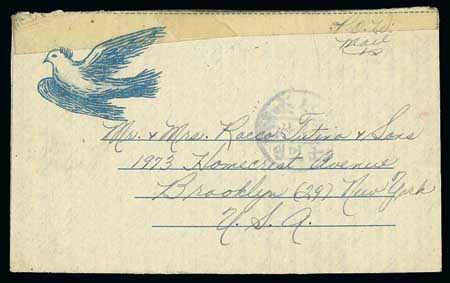 Mail
Mr. & Mrs. Rocco Tetina & Sons
1973 Homecrest Avenue
Brooklyn (29) New York
U. S. A.